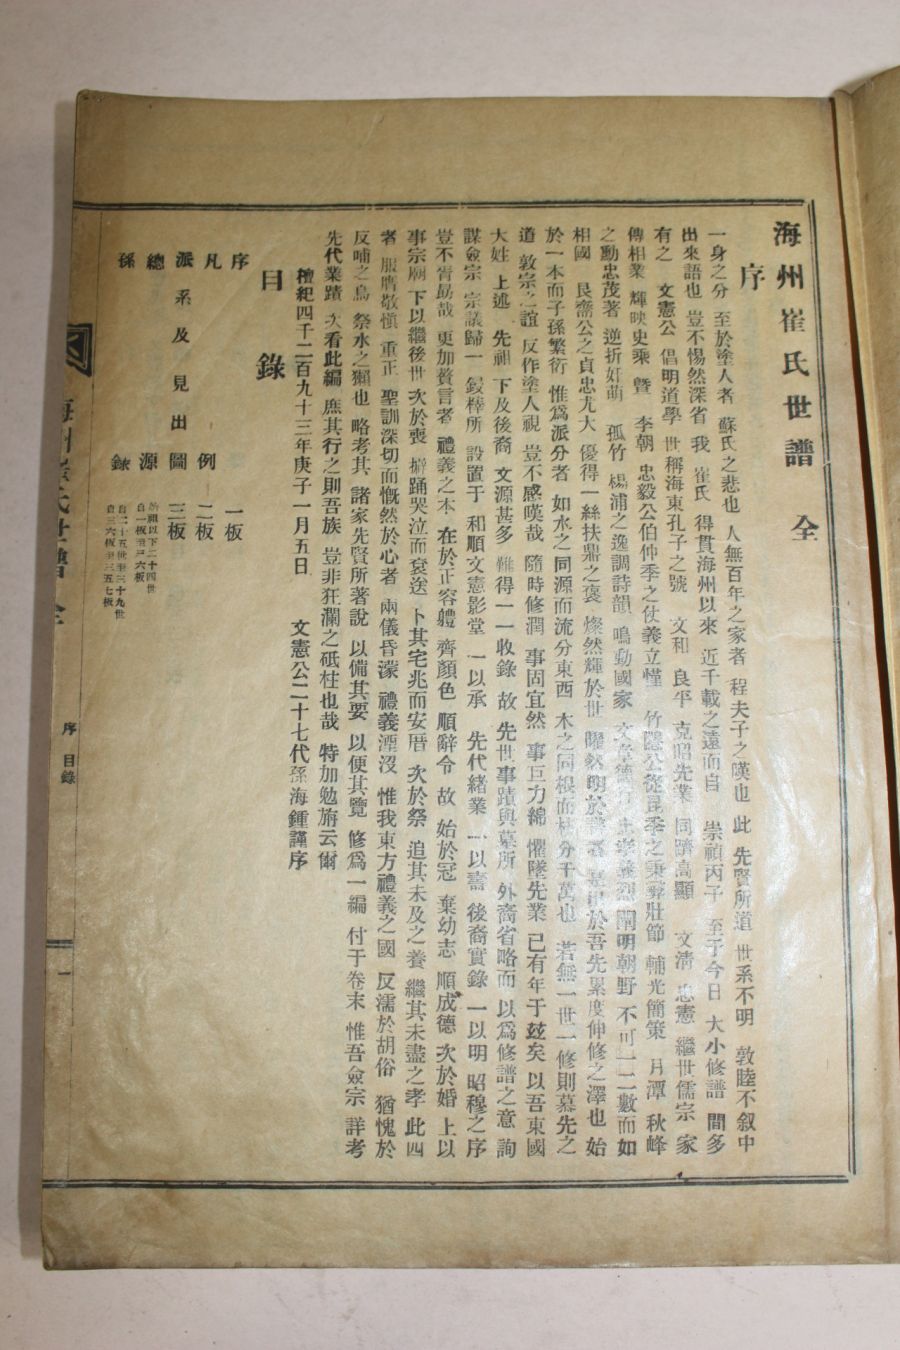 海州崔氏世譜 全
序
一身之分 至於塗人者 蘇氏之悲也 人無百年之家者 程夫子之嘆也 此 先賢所道 世系不明 敦睦不叙中
出來語也 豈不惕然深省 我 崔氏 得貫海州以來 近千載之遠而自 崇禎丙子 至于今日 大小修譜 間多
有之 文憲公 倡明道學 世稱海東孔子之號 文和 良平 克昭先業 同躋高顯 文淸 忠憲 繼世儒宗 家
傳相業 輝映史乘 曁 李朝 忠毅公伯仲季之仗義立慬 竹隱公從昆季之秉彛壯節 輔光簡策 月潭 秋峰
之勳忠茂著 逆折奸萌 孤竹 楊浦之逸調詩韻 鳴動國家 文章 烈 闡明朝野 不可一二數而如
相國 艮齋公之貞忠尤大 優得一絲扶鼎之褒 燦然輝於世 曜然明於 於吾先累度伸修之澤也 始
於一本而子孫繁衍 惟爲派分者 如水之同源而流分東西 木之同根而枝分千萬也 若無一世一修則慕先之
道 敦宗之誼 反作塗人視 豈不感嘆哉 隨時修潤 事固宜然 事巨力綿 懼墜先業 已有年于玆矣 以吾東國
大姓 上述 先祖 下及後裔 文源甚多 難得一一收錄 故 先世事蹟與墓所 外裔省略而 以爲修譜之意 詢
謀僉宗 宗議歸一 鋟梓所 設置于 和順文憲影堂 一以承 先代緒業 一以壽 後裔實錄 一以明 昭穆之序
豈不胥勗哉 更加贅言者 禮義之本 在於正容體 齊顏色 順辭令 故 始於冠 棄幼志 順成德 次於婚 上以
事宗廟 下以繼後世 次於喪 擗踊哭泣而哀送 卜其宅兆而安厝 次於祭 追其未及之養 繼其未盡之孝 此四
者 服膺敬愼 重正 聖訓深切而慨然於心者 兩儀昏濛 禮義湮沒 惟我東方禮義之國 反濡於胡俗 猶愧於
反哺之烏 祭水之獺也 略考其 諸家先賢所著說 以備其要 以便其覽 修爲一編 付于卷末 惟吾僉宗 詳考
先代業蹟 次看此編 庶其行之則吾族 豈非狂瀾之砥柱也哉 特加勉旃云爾
檀紀四千二百九十三年庚子一月五日 文憲公二十七代孫海鍾謹序
目錄
序 一板
凡例 二板
派系及見出圖 三板
總源 始祖以下二十四世 自一板至三六板
孫錄 自二十五世至三十九世 自三六板至三五七板
海州崔氏世譜 全
序 目錄
一